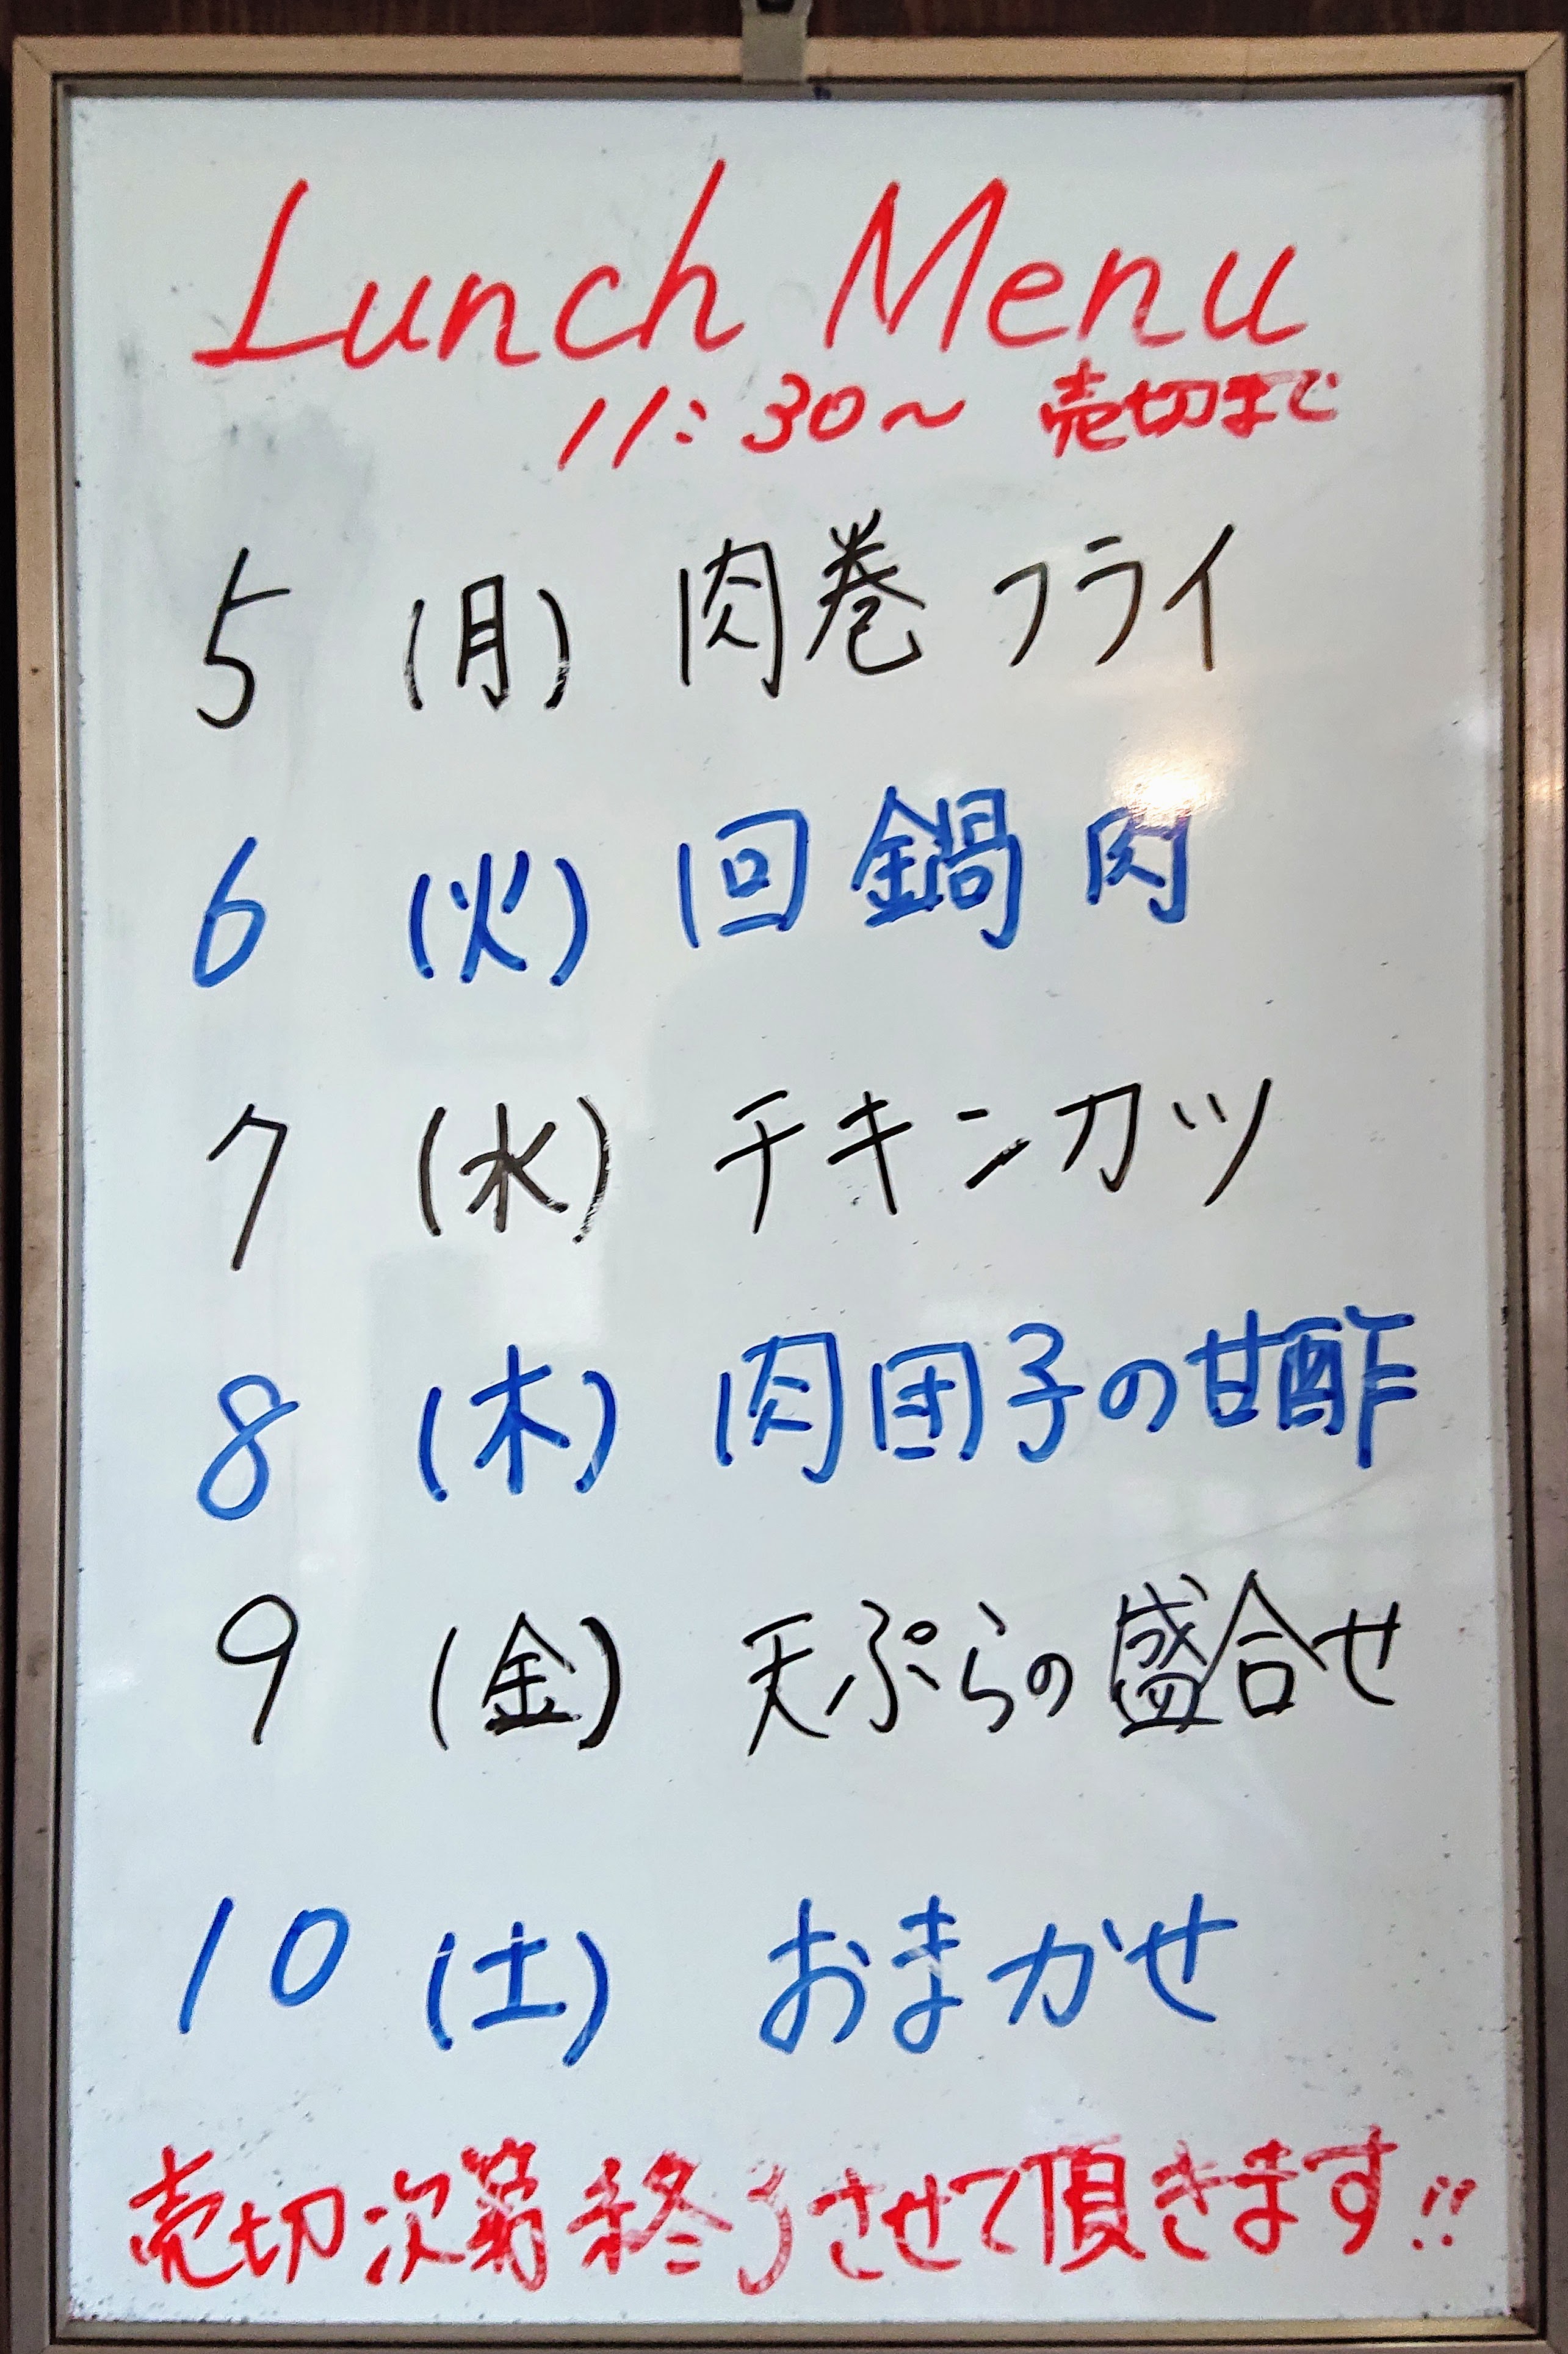 Lunch Menu
11:30～ 売切まで
5 (月) 肉巻フライ
6 (火) 回鍋肉
7 (水) チキンカツ
8 (木) 肉団子の甘酢
9 (金) 天ぷらの盛合せ
10 (土) おまかせ
売切次第終了させて頂きます!!